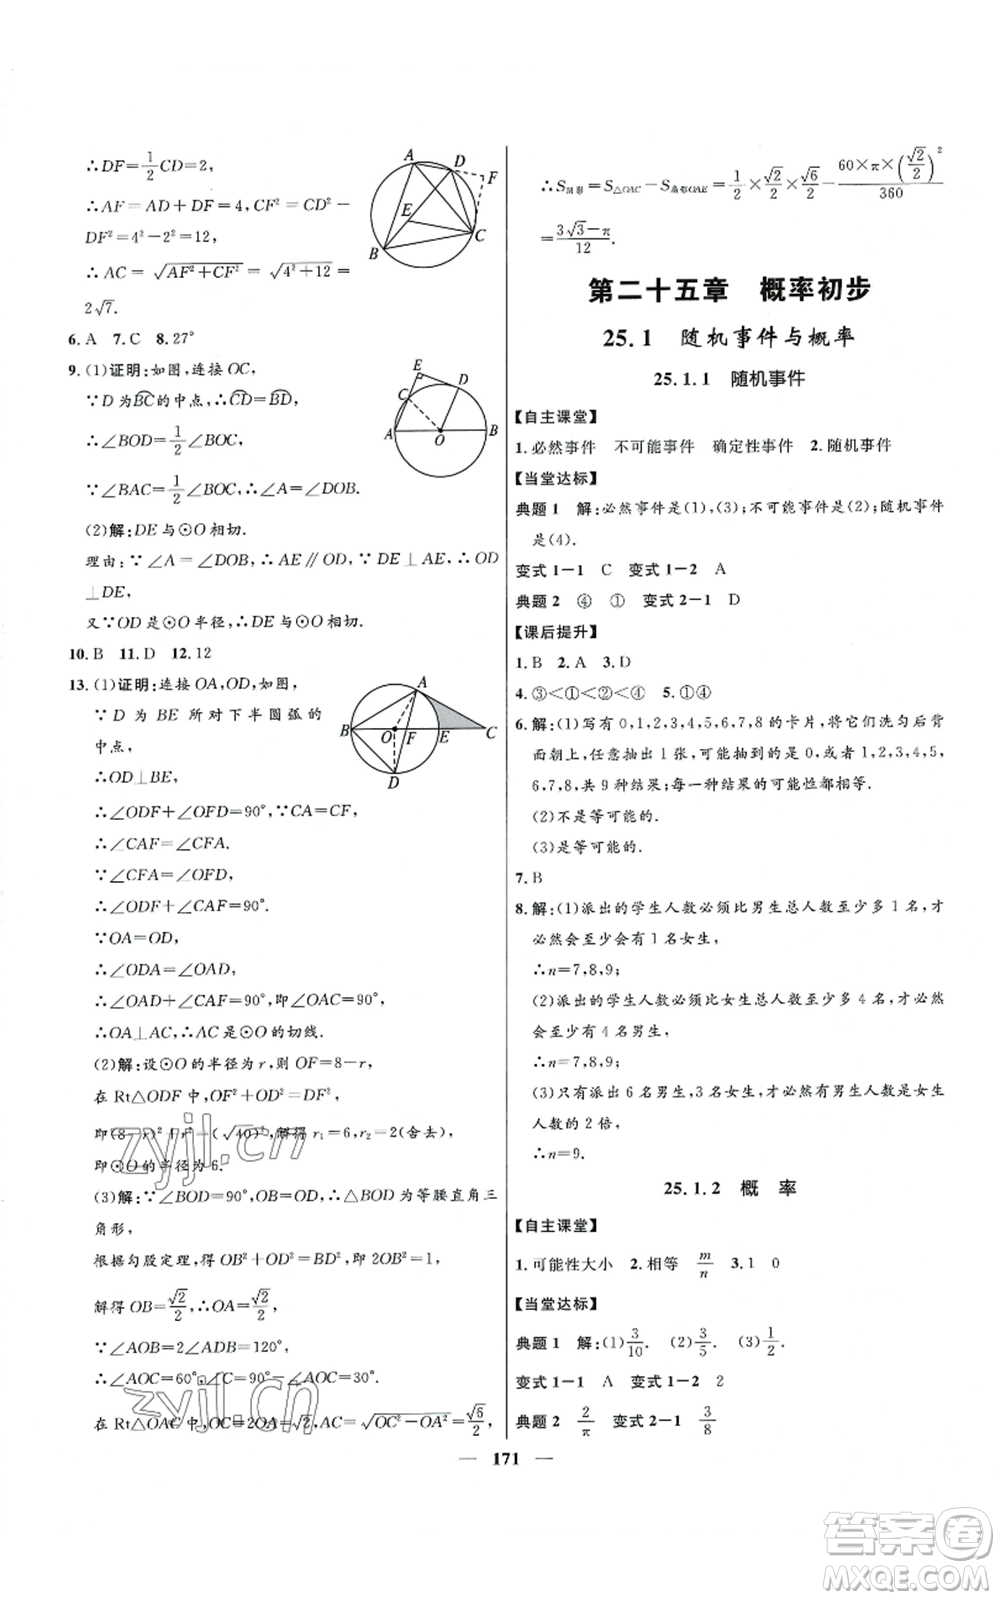 ∴DF=1/2CD=2，
∴AF=AD+DF=4,CF²=CD²-
DF²=4²-2²=12,
∴AC=√(AF²+CF²)=√(4²+12)=
2√7.
A
D
F
E
B
C
6.A 7.C 8.27°
9.(1)证明:如图,连接OC,
∵D为B͡C的中点,∴C͡D=B͡D,
∴∠BOD=1/2∠BOC,
∵∠BAC=1/2∠BOC,∴∠A=∠DOB.
E
D
C
A
O
B
(2)解:DE与⊙O相切.
理由:∵∠A=∠DOB,∴AE∥OD,∵DE⊥AE,∴OD
⊥DE,
又∵OD是⊙O半径,∴DE与⊙O相切.
10.B 11.D 12.12
13.(1)证明:连接OA,OD,如图,
∵D为BE所对下半圆弧的
中点,
∴OD⊥BE,
A
B
O
F
E
C
D
∴∠ODF+∠OFD=90°,∵CA=CF,
∴∠CAF=∠CFA.
∵∠CFA=∠OFD,
∴∠ODF+∠CAF=90°.
∵OA=OD,
∴∠ODA=∠OAD,
∴∠OAD+∠CAF=90°,即∠OAC=90°,
∴OA⊥AC,∴AC是⊙O的切线.
(2)解:设⊙O的半径为r,则OF=8-r,
在Rt△ODF中,OF²+OD²=DF²,
即(8-r)²+r²=(√40)²,解得r₁=6,r₂=2(舍去),
即⊙O的半径为6.
(3)解:∵∠BOD=90°,OB=OD,∴△BOD为等腰直角三
角形,
根据勾股定理,得OB²+OD²=BD²,即2OB²=1,
解得OB=√2/2,∴OA=√2/2,
∵∠AOB=2∠ADB=120°,
∴∠AOC=60°,∠C=90°-∠AOC=30°.
在Rt△OAC中,OC=2OA=√2,AC=√(OC²-OA²)=√6/2,
∴S阴影=S△OAC-S扇形OAE=1/2×√2/2×√6/2-60×π×(√2/2)²/360
=(3√3-π)/12.
第二十五章 概率初步
25.1 随机事件与概率
25.1.1 随机事件
【自主课堂】
1.必然事件 不可能事件 确定性事件 2.随机事件
【当堂达标】
典题1 解:必然事件是(1),(3);不可能事件是(2);随机事件
是(4).
变式1-1 C 变式1-2 A
典题2 ④ ① 变式2-1 D
【课后提升】
1.B 2.A 3.D
4.③<①<②<④ 5.①④
6.解:(1)写有0,1,2,3,4,5,6,7,8的卡片,将它们洗匀后背
面朝上,任意抽出1张,可能抽到的是0,或者1,2,3,4,5,
6,7,8,共9种结果;每一种结果的可能性都相等.
(2)不是等可能的.
(3)是等可能的.
7.B
8.解:(1)派出的学生人数必须比男生总人数至少多1名,才
必然会至少会有1名女生,
∴n=7,8,9;
(2)派出的学生人数必须比女生总人数至少多4名,才必然
会至少会有4名男生,
∴n=7,8,9;
(3)只有派出6名男生,3名女生,才必然有男生人数是女生
人数的2倍,
∴n=9.
25.1.2 概 率
【自主课堂】
1.可能性大小 2.相等 m/n 3.1 0
【当堂达标】
典题1 解:(1)3/10. (2)3/5. (3)1/2.
变式1-1 A 变式1-2 2
典题2 2/π 变式2-1 3/8
— 171 —
zyjl.cn
zyjl.cn
答案卷
MXQE.COM